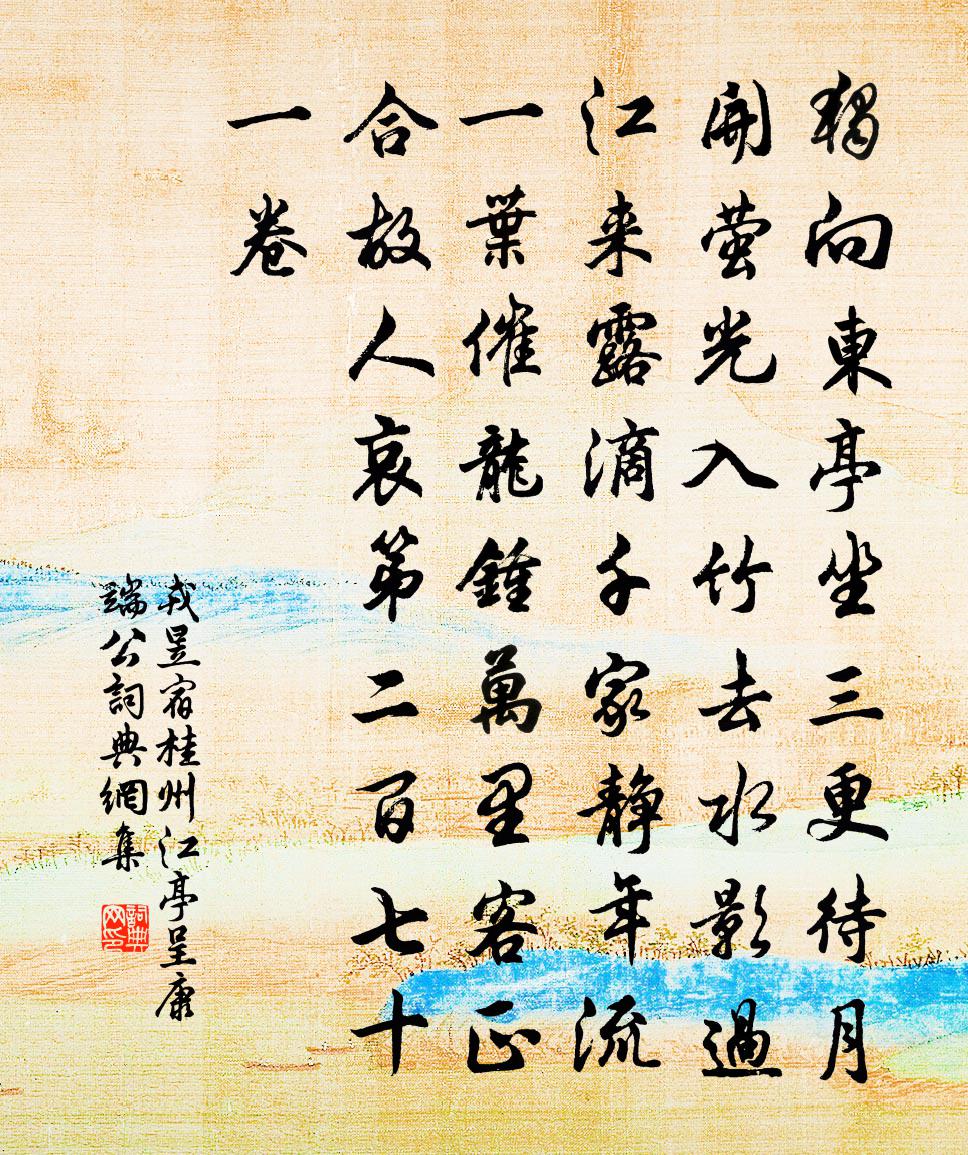 獨向東亭坐三更待月
開螢光入竹去水影過
江来露滴千家静年流
一葉催龍鍾萬里客正
合故人哀第二百七十
一卷
戎昱宿桂州江亭呈康
端公詞典網集
詞典网印